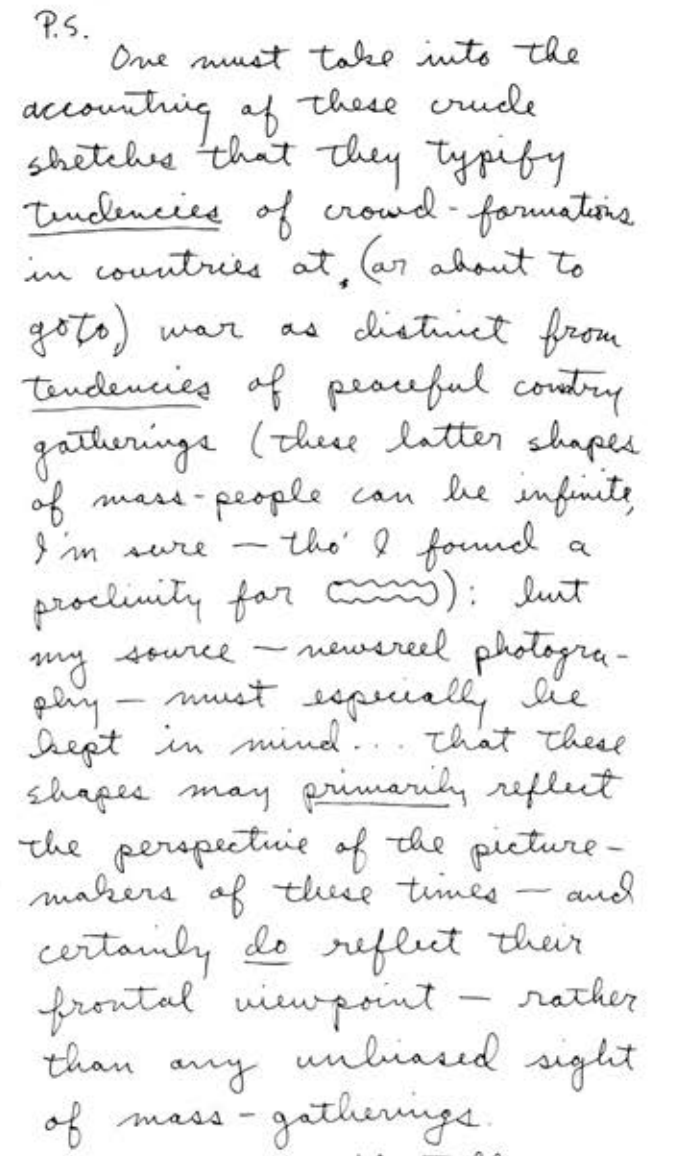 P.S.
One must take into the
accounting of these crude
sketches that they typify
tendencies of crowd-formations
in countries at, (or about to
go to,) war as distinct from
tendencies of peaceful country
gatherings (these latter shapes
of mass-people can be infinite,
I'm sure — tho' I found a
proclivity for ): but
my source — newsreel photogra-
phy — must especially be
kept in mind... that these
shapes may primarily reflect
the perspective of the picture-
makers of these times — and
certainly do reflect their
frontal viewpoint — rather
than any unbiased sight
of mass-gatherings.